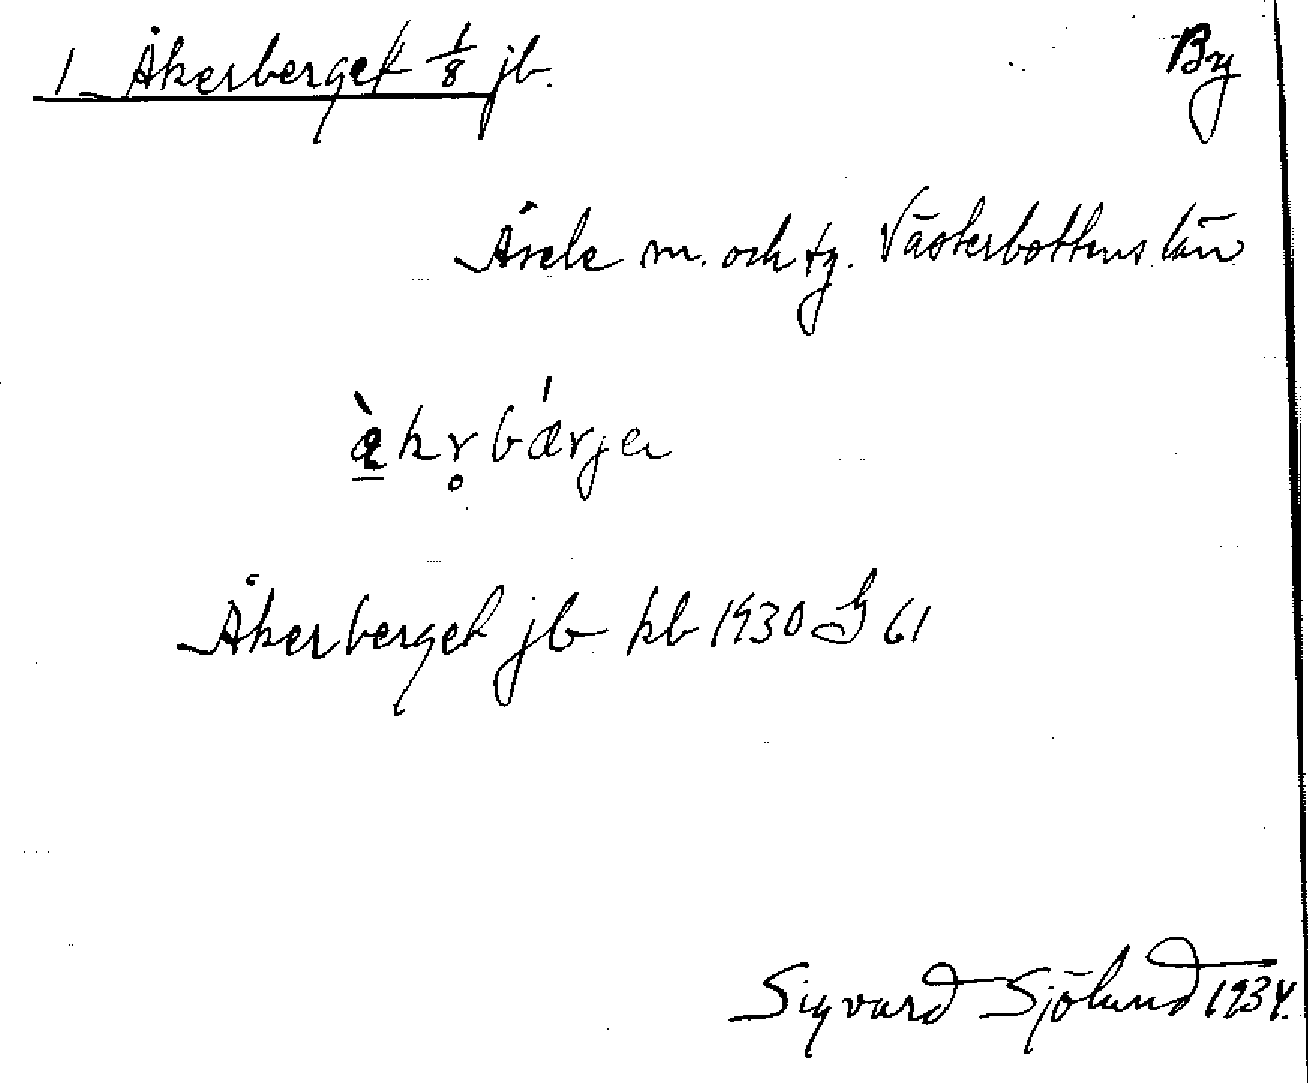 1 Åkerberget 1/8 jb. By
Åsele m. och tg. Västerbottens län
Åkerberget jb kb 1930 G 61
Sigvard Sjölund 1934.